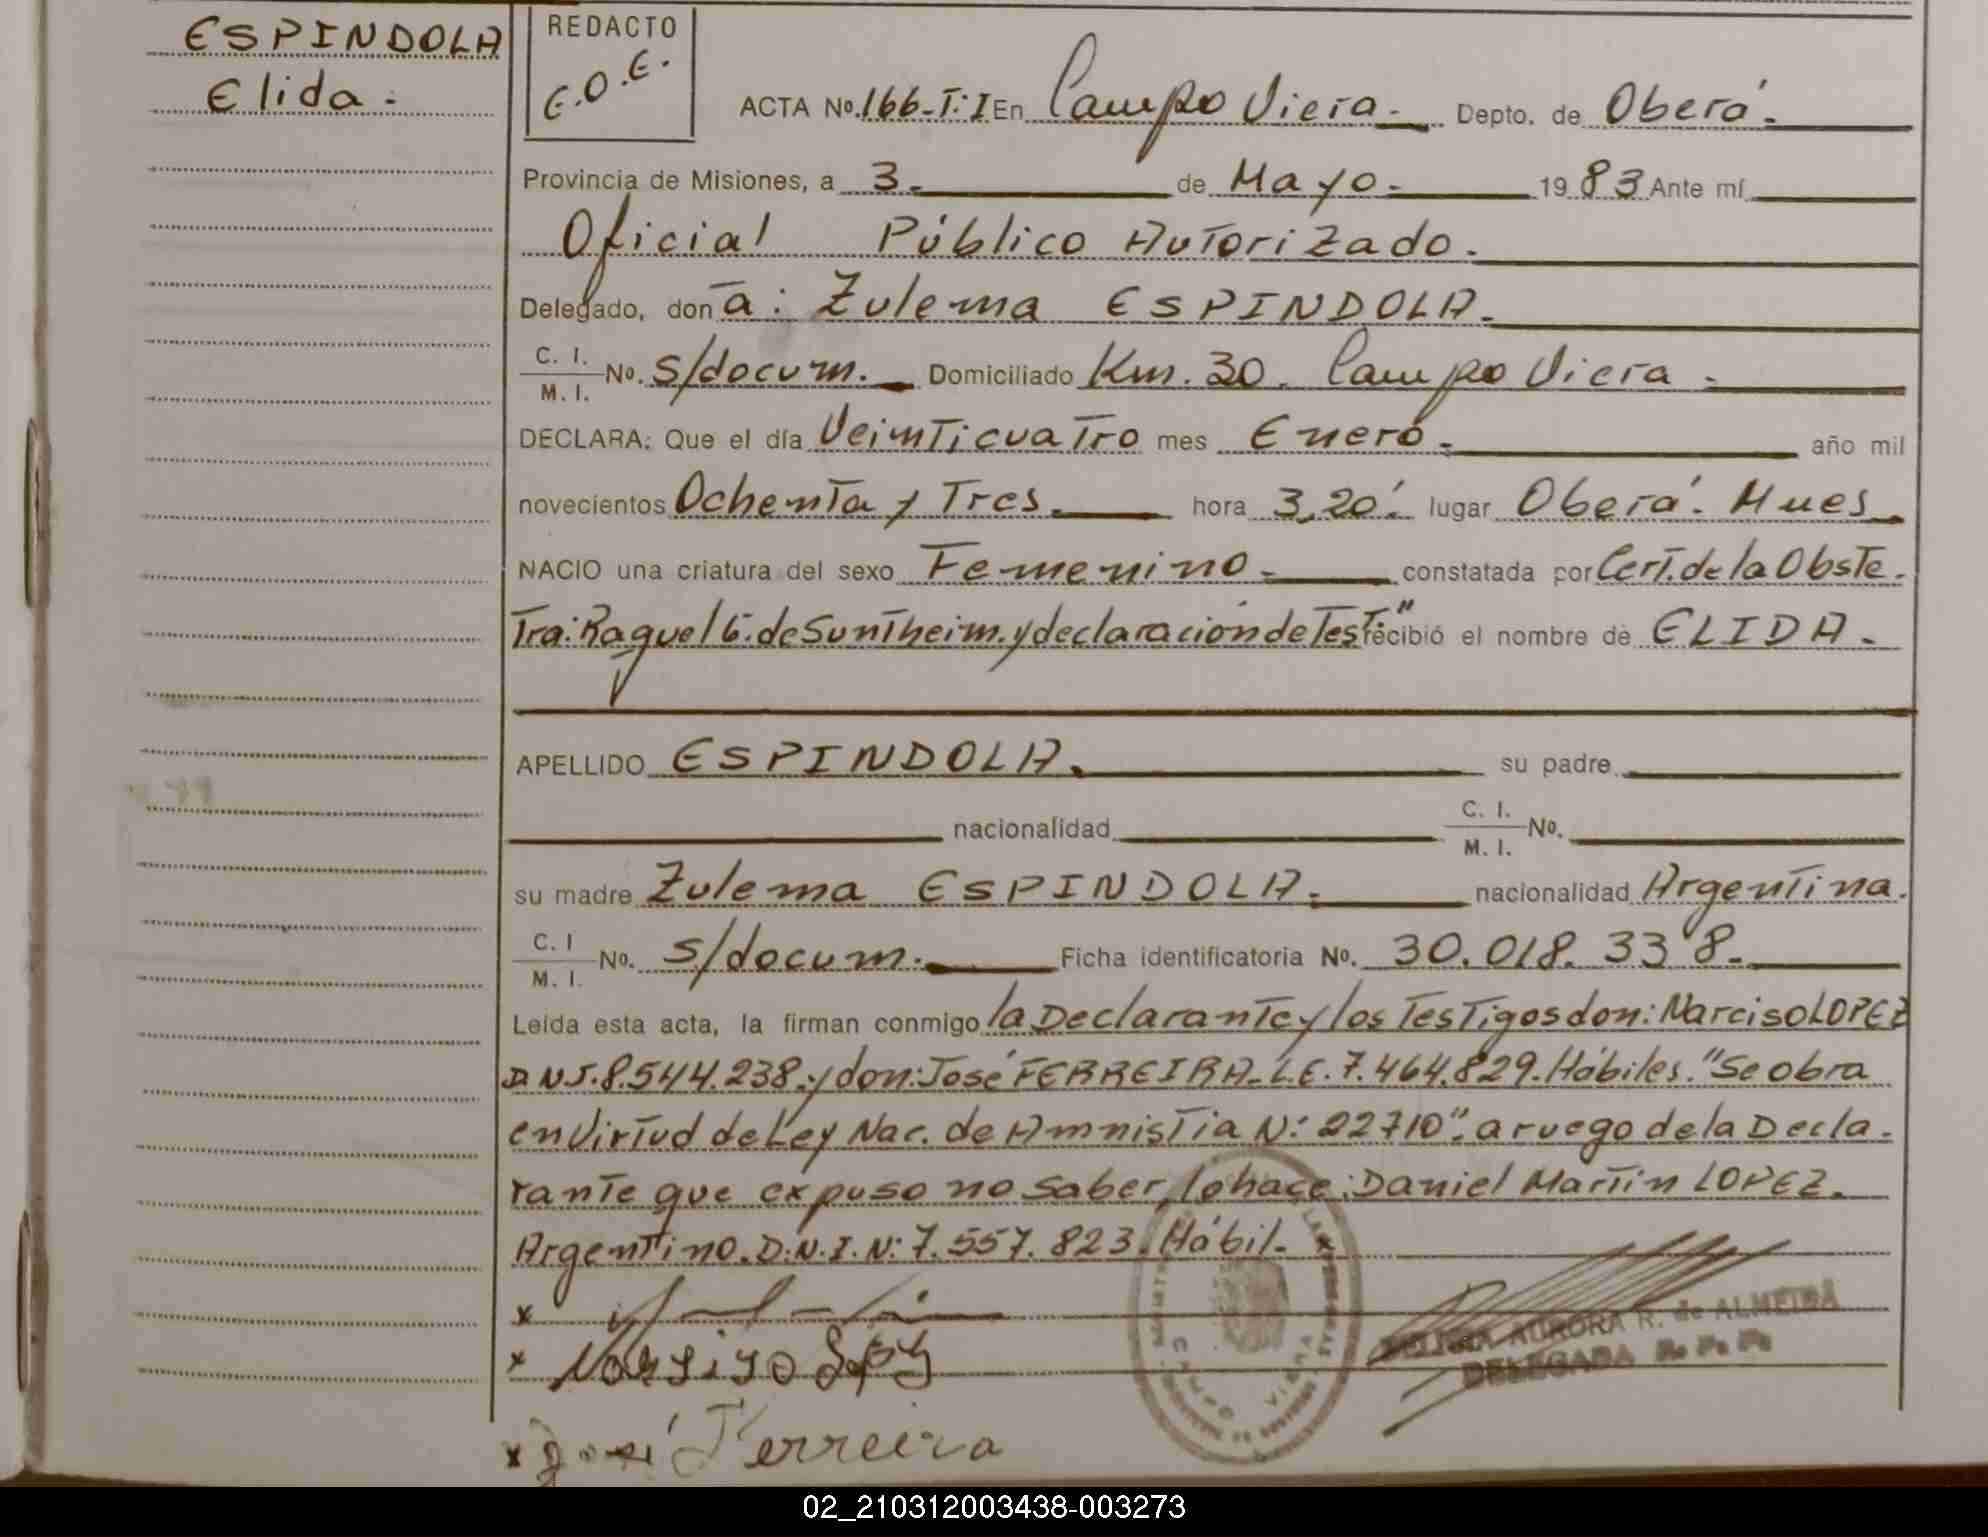 ESPINDOLA
Elida.
REDACTO
E.O.E.
ACTA Nº. 166-T:I En Campo Viera. Depto. de Oberá.
Provincia de Misiones, a 3. de Mayo. 1983 Ante mí
Oficial Público Autorizado.
Delegado, don a: Zulema ESPINDOLA.
C. I. / M. I. Nº. s/docum. Domiciliado Km. 30. Campo Viera.
DECLARA: Que el día Veinticuatro mes Enero. año mil
novecientos Ochenta y Tres. hora 3,20'. lugar Oberá. Mnes
NACIO una criatura del sexo Femenino. constatada por Cert. de la Obste.
tra: Raquel G. de Suntheim. y declaración de Test" recibió el nombre de ELIDA.
APELLIDO ESPINDOLA. su padre
nacionalidad C. I. / M. I. Nº.
su madre Zulema ESPINDOLA. nacionalidad Argentina.
C. I / M. I. Nº. s/docum. Ficha identificatoria Nº. 30.018.338.
Leída esta acta, la firman conmigo la Declarante y los Testigos don: Narciso LOPEZ
D.N.I. 8.544.238. y don: José FERREIRA. L.E. 7.464.829. Hábiles. "Se obra
en Virtud de Ley Nac. de Amnistia N: 22710". a ruego de la Decla.
rante que expuso no saber, lo hace: Daniel Martin LOPEZ.
Argentino. D.N.I. N: 7.557.823. Hábil.
x
x Narsiso Lopez
x José Ferreira
AURORA R. de ALMEIDA
DELEGADA R. P. P.
CAMPO VIERA
02_210312003438-003273